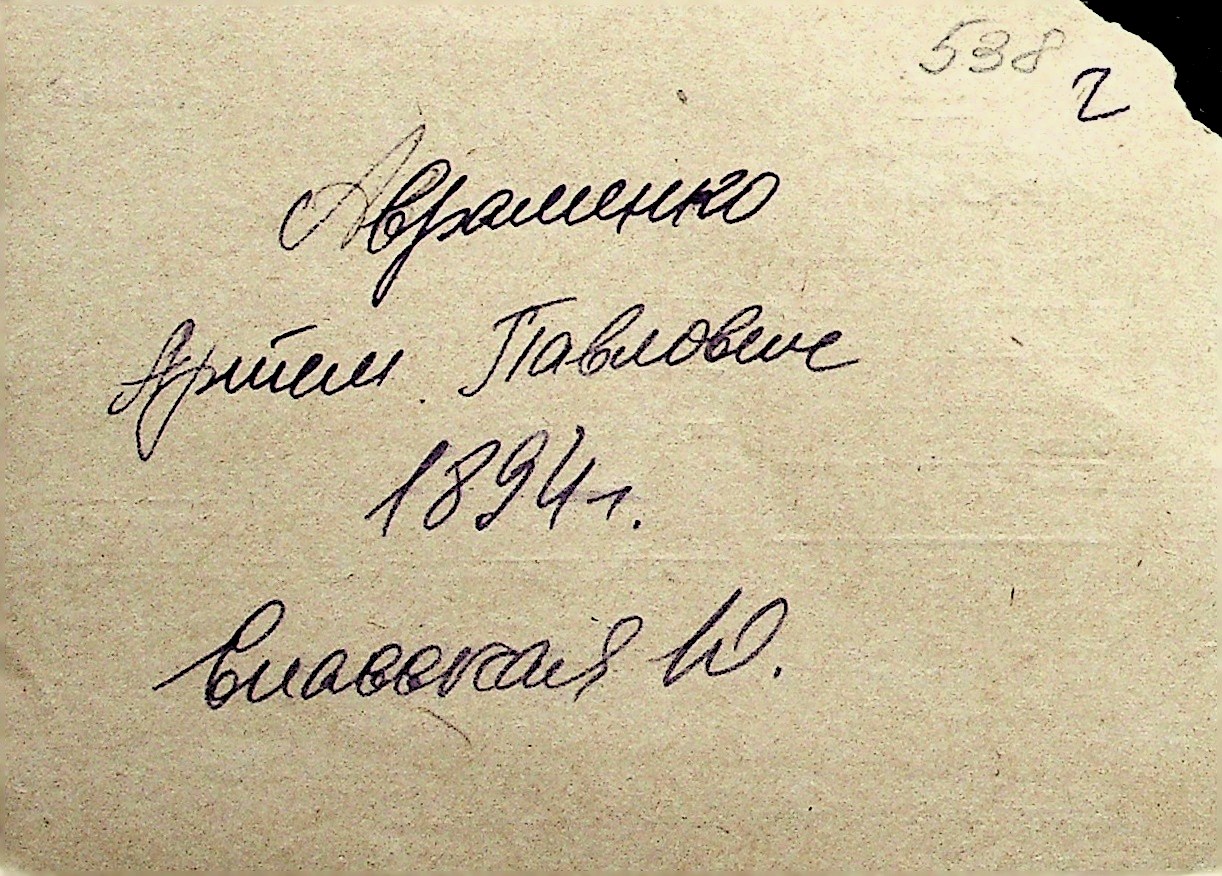 538 2
Авраменко
Артем Павлович
1894 г.
Ю.